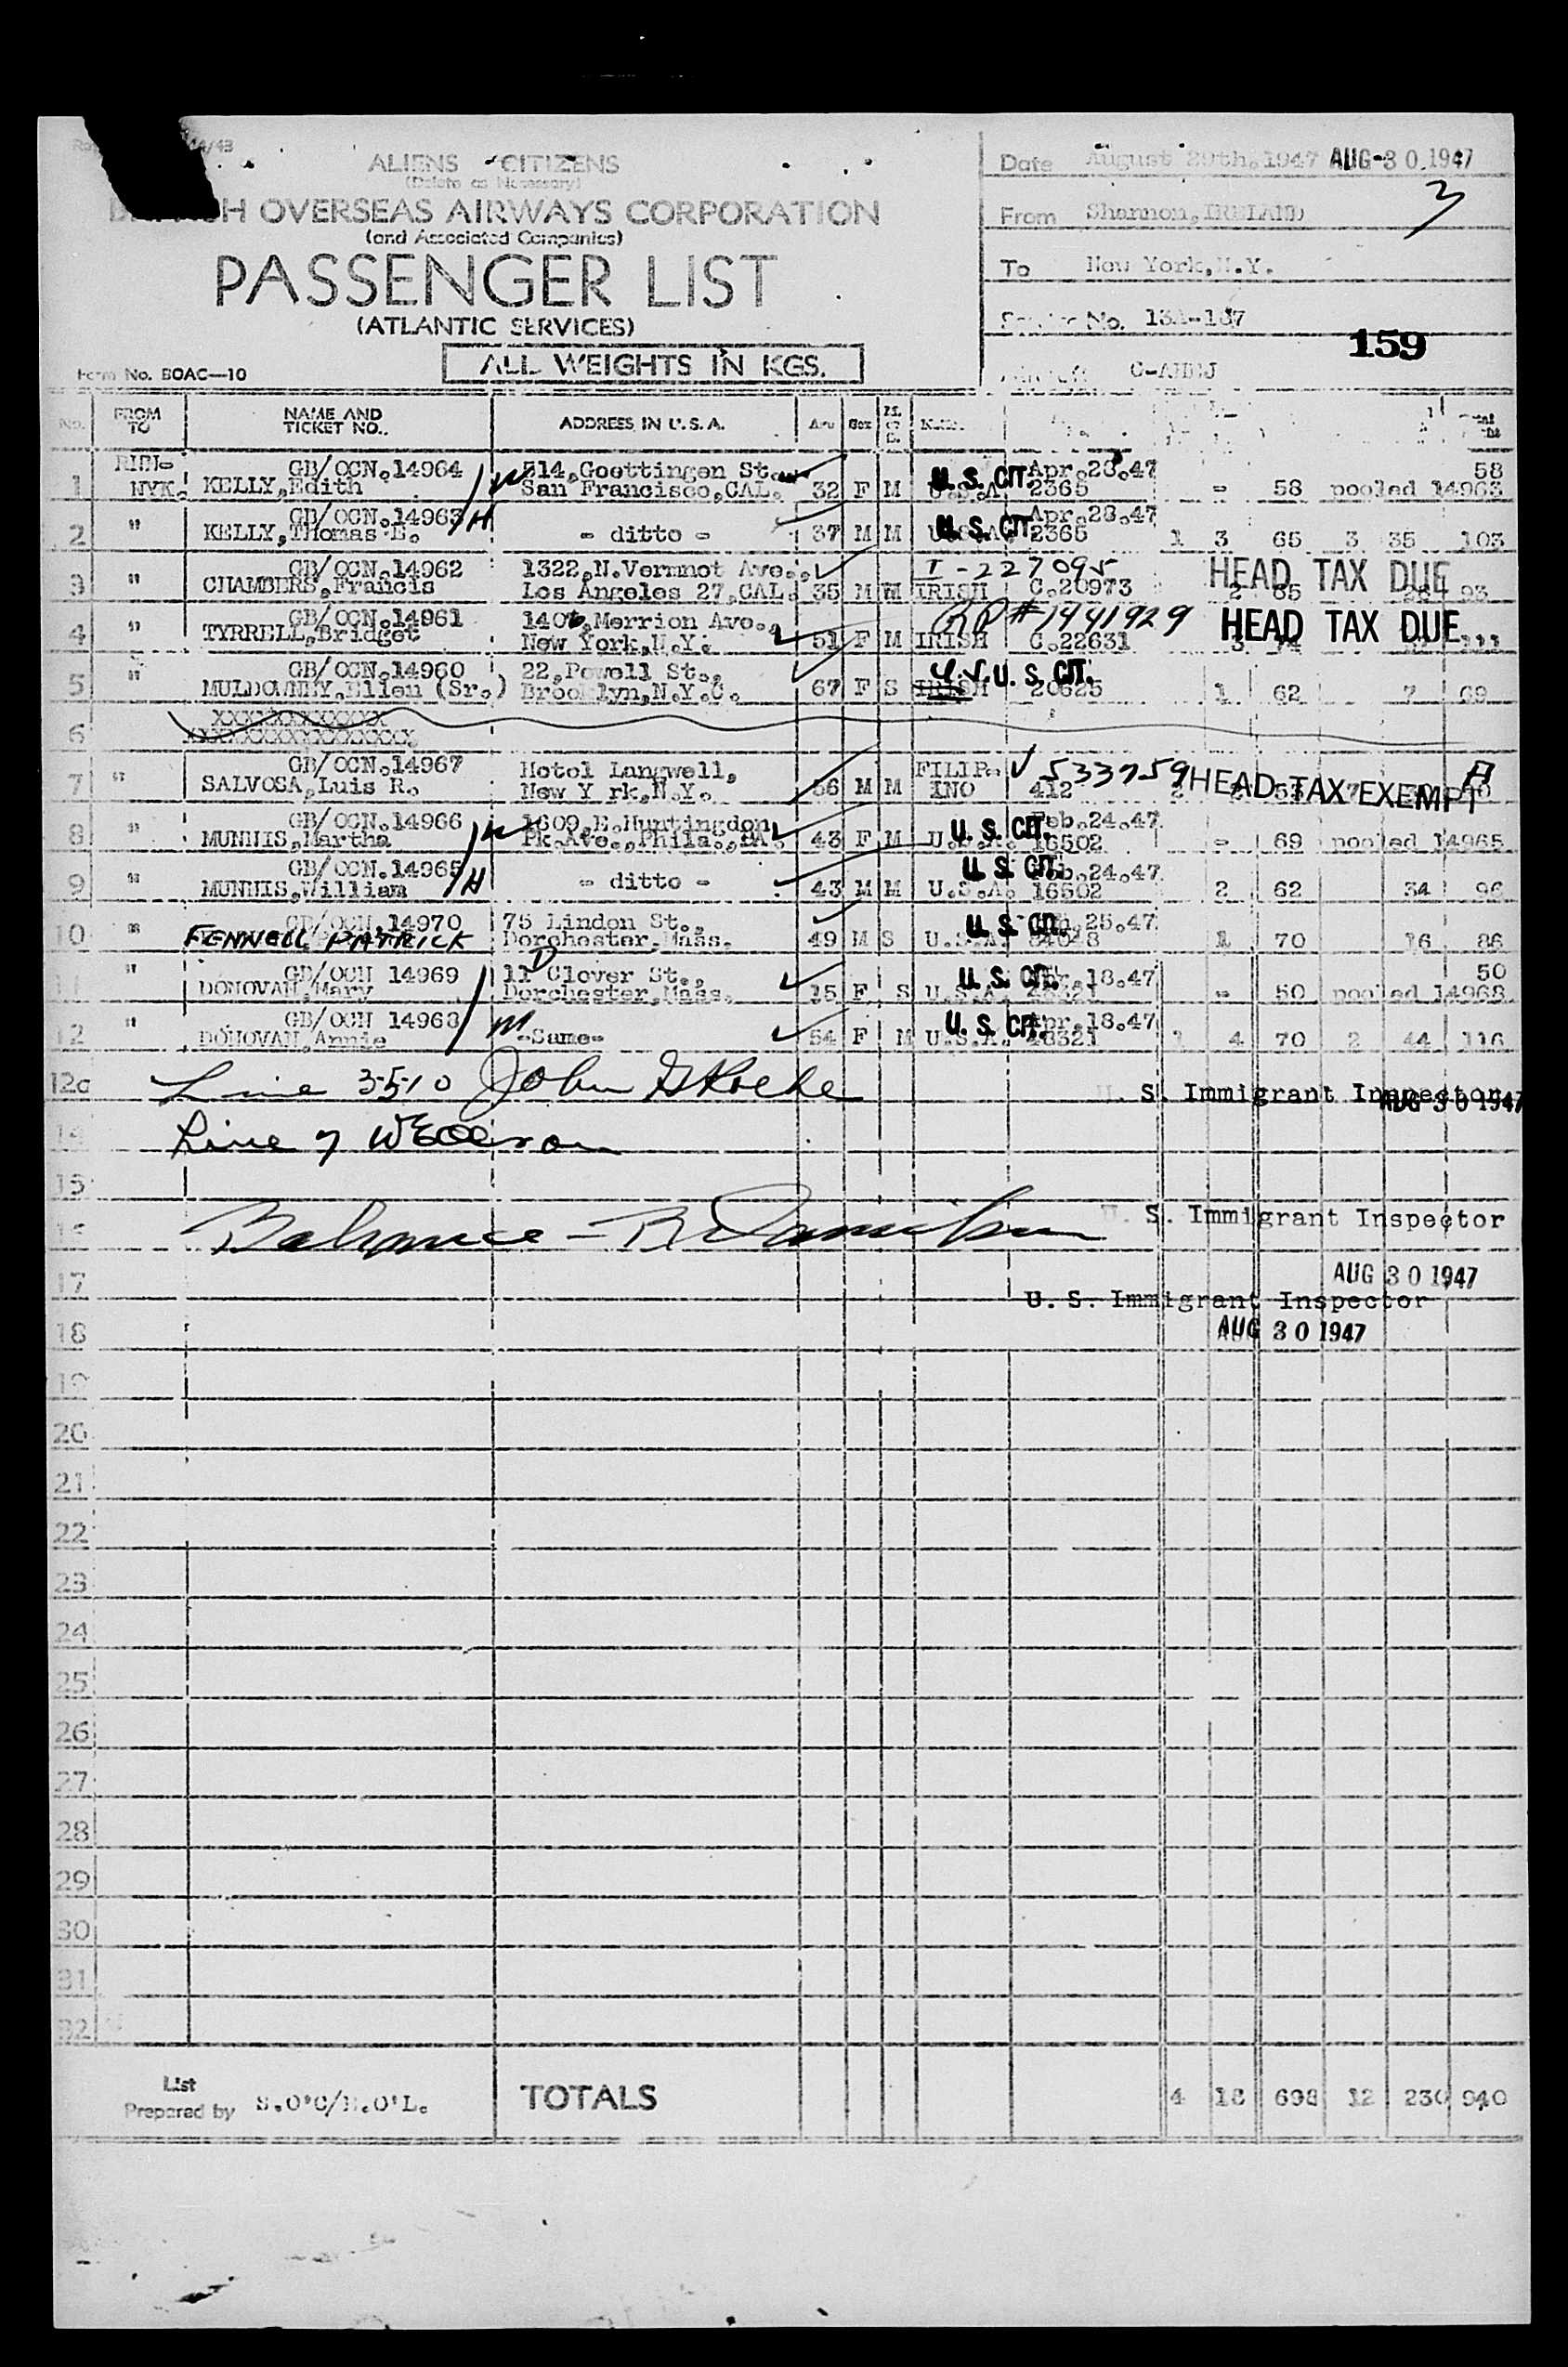 44/43
ALIENS CITIZENS
(Delete as Necessary)
H OVERSEAS AIRWAYS CORPORATION
(and Associated Companies)
PASSENGER LIST
(ATLANTIC SERVICES)
ALL WEIGHTS IN KGS.
Form No. BOAC—10
Date August 29th.1947 AUG 30 1947
From Shannon, IRELAND 3
To New York, N.Y.
No. 13A-167
159
No. FROM TO NAME AND TICKET NO. ADDRESS IN U.S.A. Age Sex M. or S.
GB/OCN.14964 514, Goettingen St. Apr.28.47 58
1 NYK. KELLY, Edith W San Francisco, CAL. 32 F M U.S.A. U. S. CIT. 2365 - 58 pooled 14963
GB/OCN.14963 Apr.28.47
2 " KELLY, Thomas E. H - ditto - 37 M M U.S.A. U. S. CIT. 2365 1 3 65 3 35 103
GB/OCN.14962 1322, N.Vermnot Ave., I-227095
3 " CHAMBERS, Francis Los Angeles 27, CAL. 35 M M IRISH C.20973 2 65 93 HEAD TAX DUE
GB/OCN.14961 Merrion Ave., RP # 1941929
4 " TYRRELL, Bridget New York, N.Y. 51 F M IRISH C.22631 3 74 HEAD TAX DUE
GB/OCN.14960 22, Powell St.,
5 " MULDOWNEY, Ellen (Sr.) Brooklyn, N.Y.C. 67 F S IRISH U. S. CIT. 20625 1 62 7 69
XXXXXXXXXXXXX
6 XXXXXXXXXXXXXXXXX
GB/OCN.14967 Hotel Langwell, FILIP- V 533759
7 " SALVOSA, Luis R. New Y rk, N.Y. 56 M M INO 412 HEAD TAX EXEMPT
GB/OCN.14966 1609, E. Huntingdon Feb.24.47
8 " MUNNIS, Martha W Pk. Ave., Phila., PA. 43 F M U.S.A. U. S. CIT. 16502 - 69 pooled 14965
GB/OCN.14965 Feb.24.47
9 " MUNNIS, William H - ditto - 43 M M U.S.A. U. S. CIT. 16502 2 62 34 96
GB/OCN.14970 75 Lindon St., 25.47
10 " FENNELL PATRICK Dorchester, Mass. 49 M S U.S.A. U. S. CIT. 84048 1 70 16 86
GB/OCN 14969 11 Clover St., Apr.18.47 50
11 " DONOVAN, Mary Dorchester, Mass. 15 F S U.S.A. U. S. CIT. 48321 - 50 pooled 14968
GB/OCN 14968 Apr.18.47
12 " DONOVAN, Annie M -Same- 54 F M U.S.A. U. S. CIT. 48321 1 4 70 2 44 116
12a Line 3-5-10 John U. S. Immigrant Inspector AUG 30 1947
14 Line 7
15
16 Balance - U. S. Immigrant Inspector
AUG 30 1947
17 U. S. Immigrant Inspector
18 AUG 30 1947
19
20
21
22
23
24
25
26
27
28
29
30
31
32
List Prepared by S.O'C/ .O'L. TOTALS 4 18 698 12 230 940